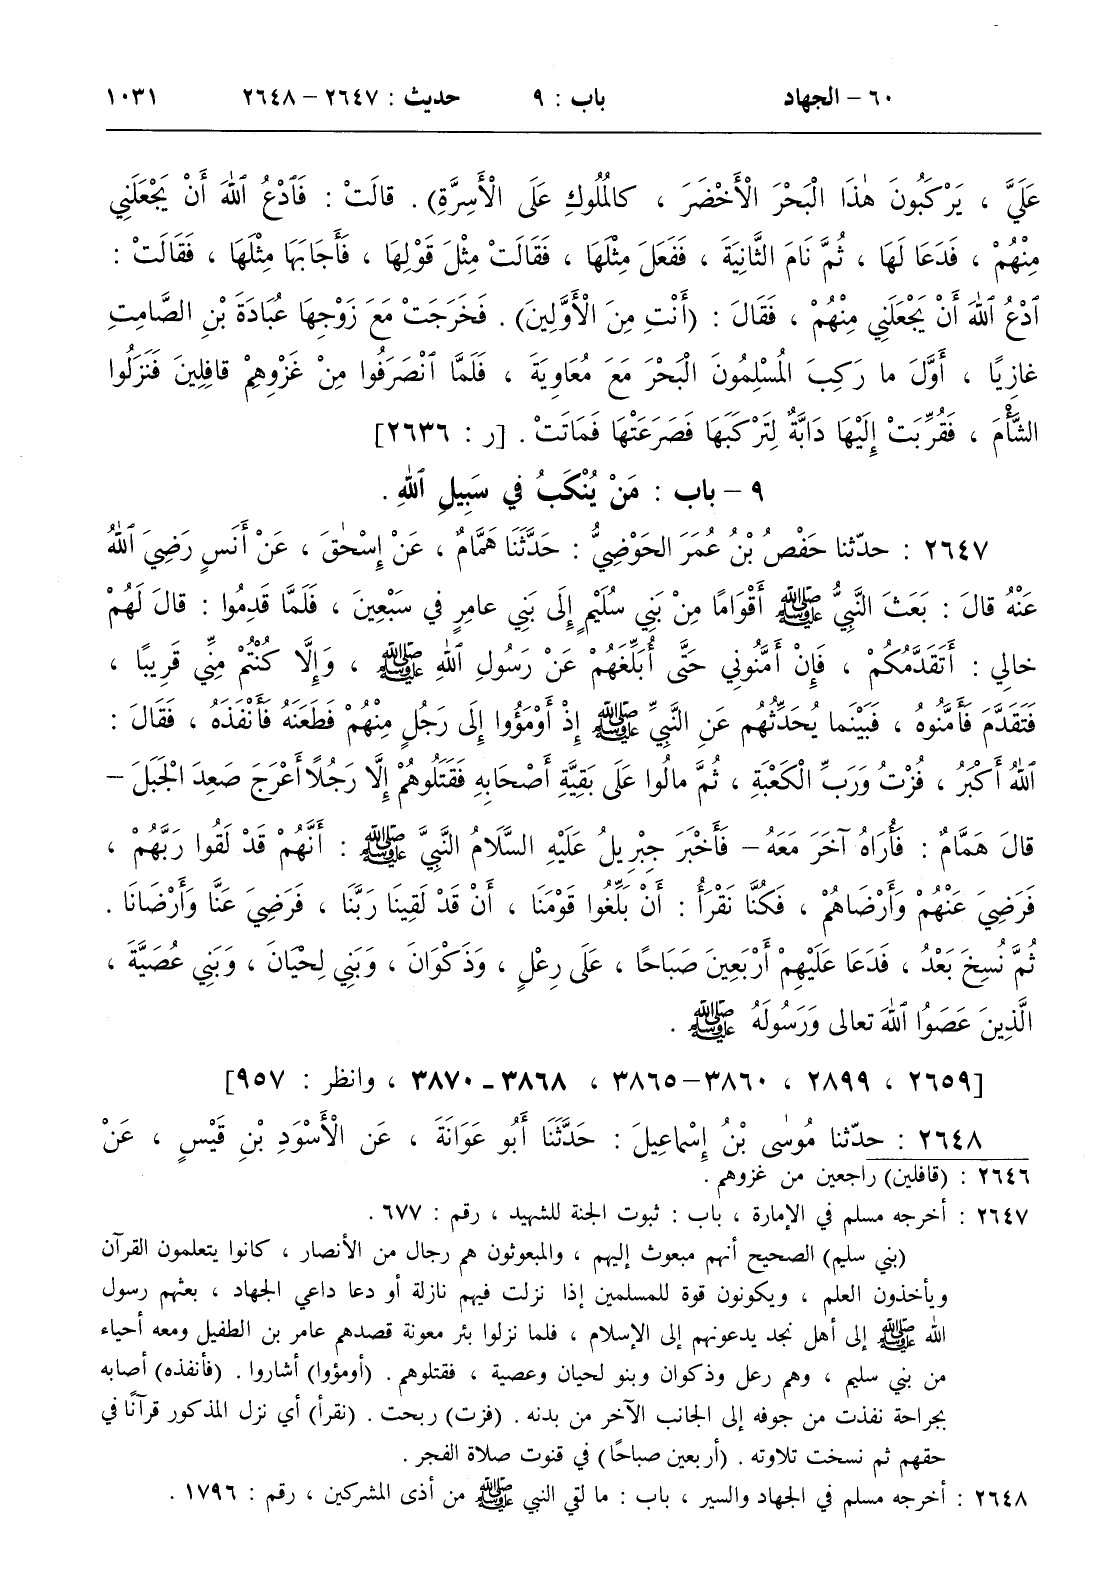 ٦٠ – الجهاد باب : ٩ حديث : ٢٦٤٧ – ٢٦٤٨ ١٠٣١
عَلَيَّ ، يَرْكَبُونَ هٰذَا الْبَحْرَ الْأَخْضَرَ ، كالْمُلُوكِ عَلَى الْأَسِرَّةِ) . قالَتْ : فَٱدْعُ ٱللهَ أَنْ يَجْعَلَنِي
مِنْهُمْ ، فَدَعَا لَهَا ، ثُمَّ نَامَ الثَّانِيَةَ ، فَفَعَلَ مِثْلَهَا ، فَقَالَتْ مِثْلَ قَوْلِهَا ، فَأَجابَهَا مِثْلَهَا ، فَقَالَتْ :
ٱدْعُ ٱللهَ أَنْ يَجْعَلَنِي مِنْهُمْ ، فَقَالَ : (أَنْتِ مِنَ الْأَوَّلِينَ) . فَخَرَجَتْ مَعَ زَوْجِهَا عُبَادَةَ بْنِ الصَّامِتِ
غازِيًا ، أَوَّلَ ما رَكِبَ الْمُسْلِمُونَ الْبَحْرَ مَعَ مُعَاوِيَةَ ، فَلَمَّا ٱنْصَرَفُوا مِنْ غَزْوِهِمْ قافِلِينَ فَنَزَلُوا
الشَّأْمَ ، فَقُرِّبَتْ إِلَيْهَا دَابَّةٌ لِتَرْكَبَهَا فَصَرَعَتْهَا فَمَاتَتْ . [ر : ٢٦٣٦]
٩ – باب : مَنْ يُنْكَبُ في سَبِيلِ ٱللهِ .
٢٦٤٧ : حدّثنا حَفْصُ بْنُ عُمَرَ الحَوْضِيُّ : حَدَّثَنَا هَمَّامٌ ، عَنْ إِسْحٰقَ ، عَنْ أَنَسٍ رَضِيَ ٱللهُ
عَنْهُ قالَ : بَعَثَ النَّبِيُّ ﷺ أَقْوَامًا مِنْ بَنِي سُلَيْمٍ إِلَى بَنِي عامِرٍ في سَبْعِينَ ، فَلَمَّا قَدِمُوا : قالَ لَهُمْ
خالِي : أَتَقَدَّمُكُمْ ، فَإِنْ أَمَّنُونِي حَتَّى أُبَلِّغَهُمْ عَنْ رَسُولِ ٱللهِ ﷺ ، وَإِلَّا كُنْتُمْ مِنِّي قَرِيبًا ،
فَتَقَدَّمَ فَأَمَّنُوهُ ، فَبَيْنَما يُحَدِّثُهُم عَنِ النَّبِيِّ ﷺ إِذْ أَوْمَؤُوا إِلَى رَجُلٍ مِنْهُمْ فَطَعَنَهُ فَأَنْفَذَهُ ، فَقَالَ :
ٱللهُ أَكْبَرُ ، فُزْتُ وَرَبِّ الْكَعْبَةِ ، ثُمَّ مالُوا عَلَى بَقِيَّةِ أَصْحَابِهِ فَقَتَلُوهُمْ إِلَّا رَجُلًا أَعْرَجَ صَعِدَ الْجَبَلَ –
قالَ هَمَّامٌ : فَأُرَاهُ آخَرَ مَعَهُ – فَأَخْبَرَ جِبْرِيلُ عَلَيْهِ السَّلَامُ النَّبِيَّ ﷺ : أَنَّهُمْ قَدْ لَقُوا رَبَّهُمْ ،
فَرَضِيَ عَنْهُمْ وَأَرْضَاهُمْ ، فَكُنَّا نَقْرَأُ : أَنْ بَلِّغُوا قَوْمَنَا ، أَنْ قَدْ لَقِينَا رَبَّنَا ، فَرَضِيَ عَنَّا وَأَرْضَانَا .
ثُمَّ نُسِخَ بَعْدُ ، فَدَعَا عَلَيْهِمْ أَرْبَعِينَ صَبَاحًا ، عَلَى رِعْلٍ ، وَذَكْوَانَ ، وَبَنِي لِحْيَانَ ، وَبَنِي عُصَيَّةَ ،
الَّذِينَ عَصَوُا ٱللهَ تعالى وَرَسُولَهُ ﷺ .
[٢٦٥٩ ، ٢٨٩٩ ، ٣٨٦٠–٣٨٦٥ ، ٣٨٦٨ـ٣٨٧٠ ، وانظر : ٩٥٧]
٢٦٤٨ : حدّثنا مُوسٰى بْنُ إِسْماعِيلَ : حَدَّثَنَا أَبُو عَوَانَةَ ، عَنِ الْأَسْوَدِ بْنِ قَيْسٍ ، عَنْ
٢٦٤٦ : (قافلين) راجعين من غزوهم .
٢٦٤٧ : أخرجه مسلم في الإمارة ، باب : ثبوت الجنة للشهيد ، رقم : ٦٧٧ .
(بني سليم) الصحيح أنهم مبعوث إليهم ، والمبعوثون هم رجال من الأنصار ، كانوا يتعلمون القرآن
ويأخذون العلم ، ويكونون قوة للمسلمين إذا نزلت فيهم نازلة أو دعا داعي الجهاد ، بعثهم رسول
الله ﷺ إلى أهل نجد يدعونهم إلى الإسلام ، فلما نزلوا بئر معونة قصدهم عامر بن الطفيل ومعه أحياء
من بني سليم ، وهم رعل وذكوان وبنو لحيان وعصية ، فقتلوهم . (أومؤوا) أشاروا . (فأنفذه) أصابه
بجراحة نفذت من جوفه إلى الجانب الآخر من بدنه . (فزت) ربحت . (نقرأ) أي نزل المذكور قرآنًا في
حقهم ثم نسخت تلاوته . (أربعين صباحًا) في قنوت صلاة الفجر .
٢٦٤٨ : أخرجه مسلم في الجهاد والسير ، باب : ما لقي النبي ﷺ من أذى المشركين ، رقم : ١٧٩٦ .